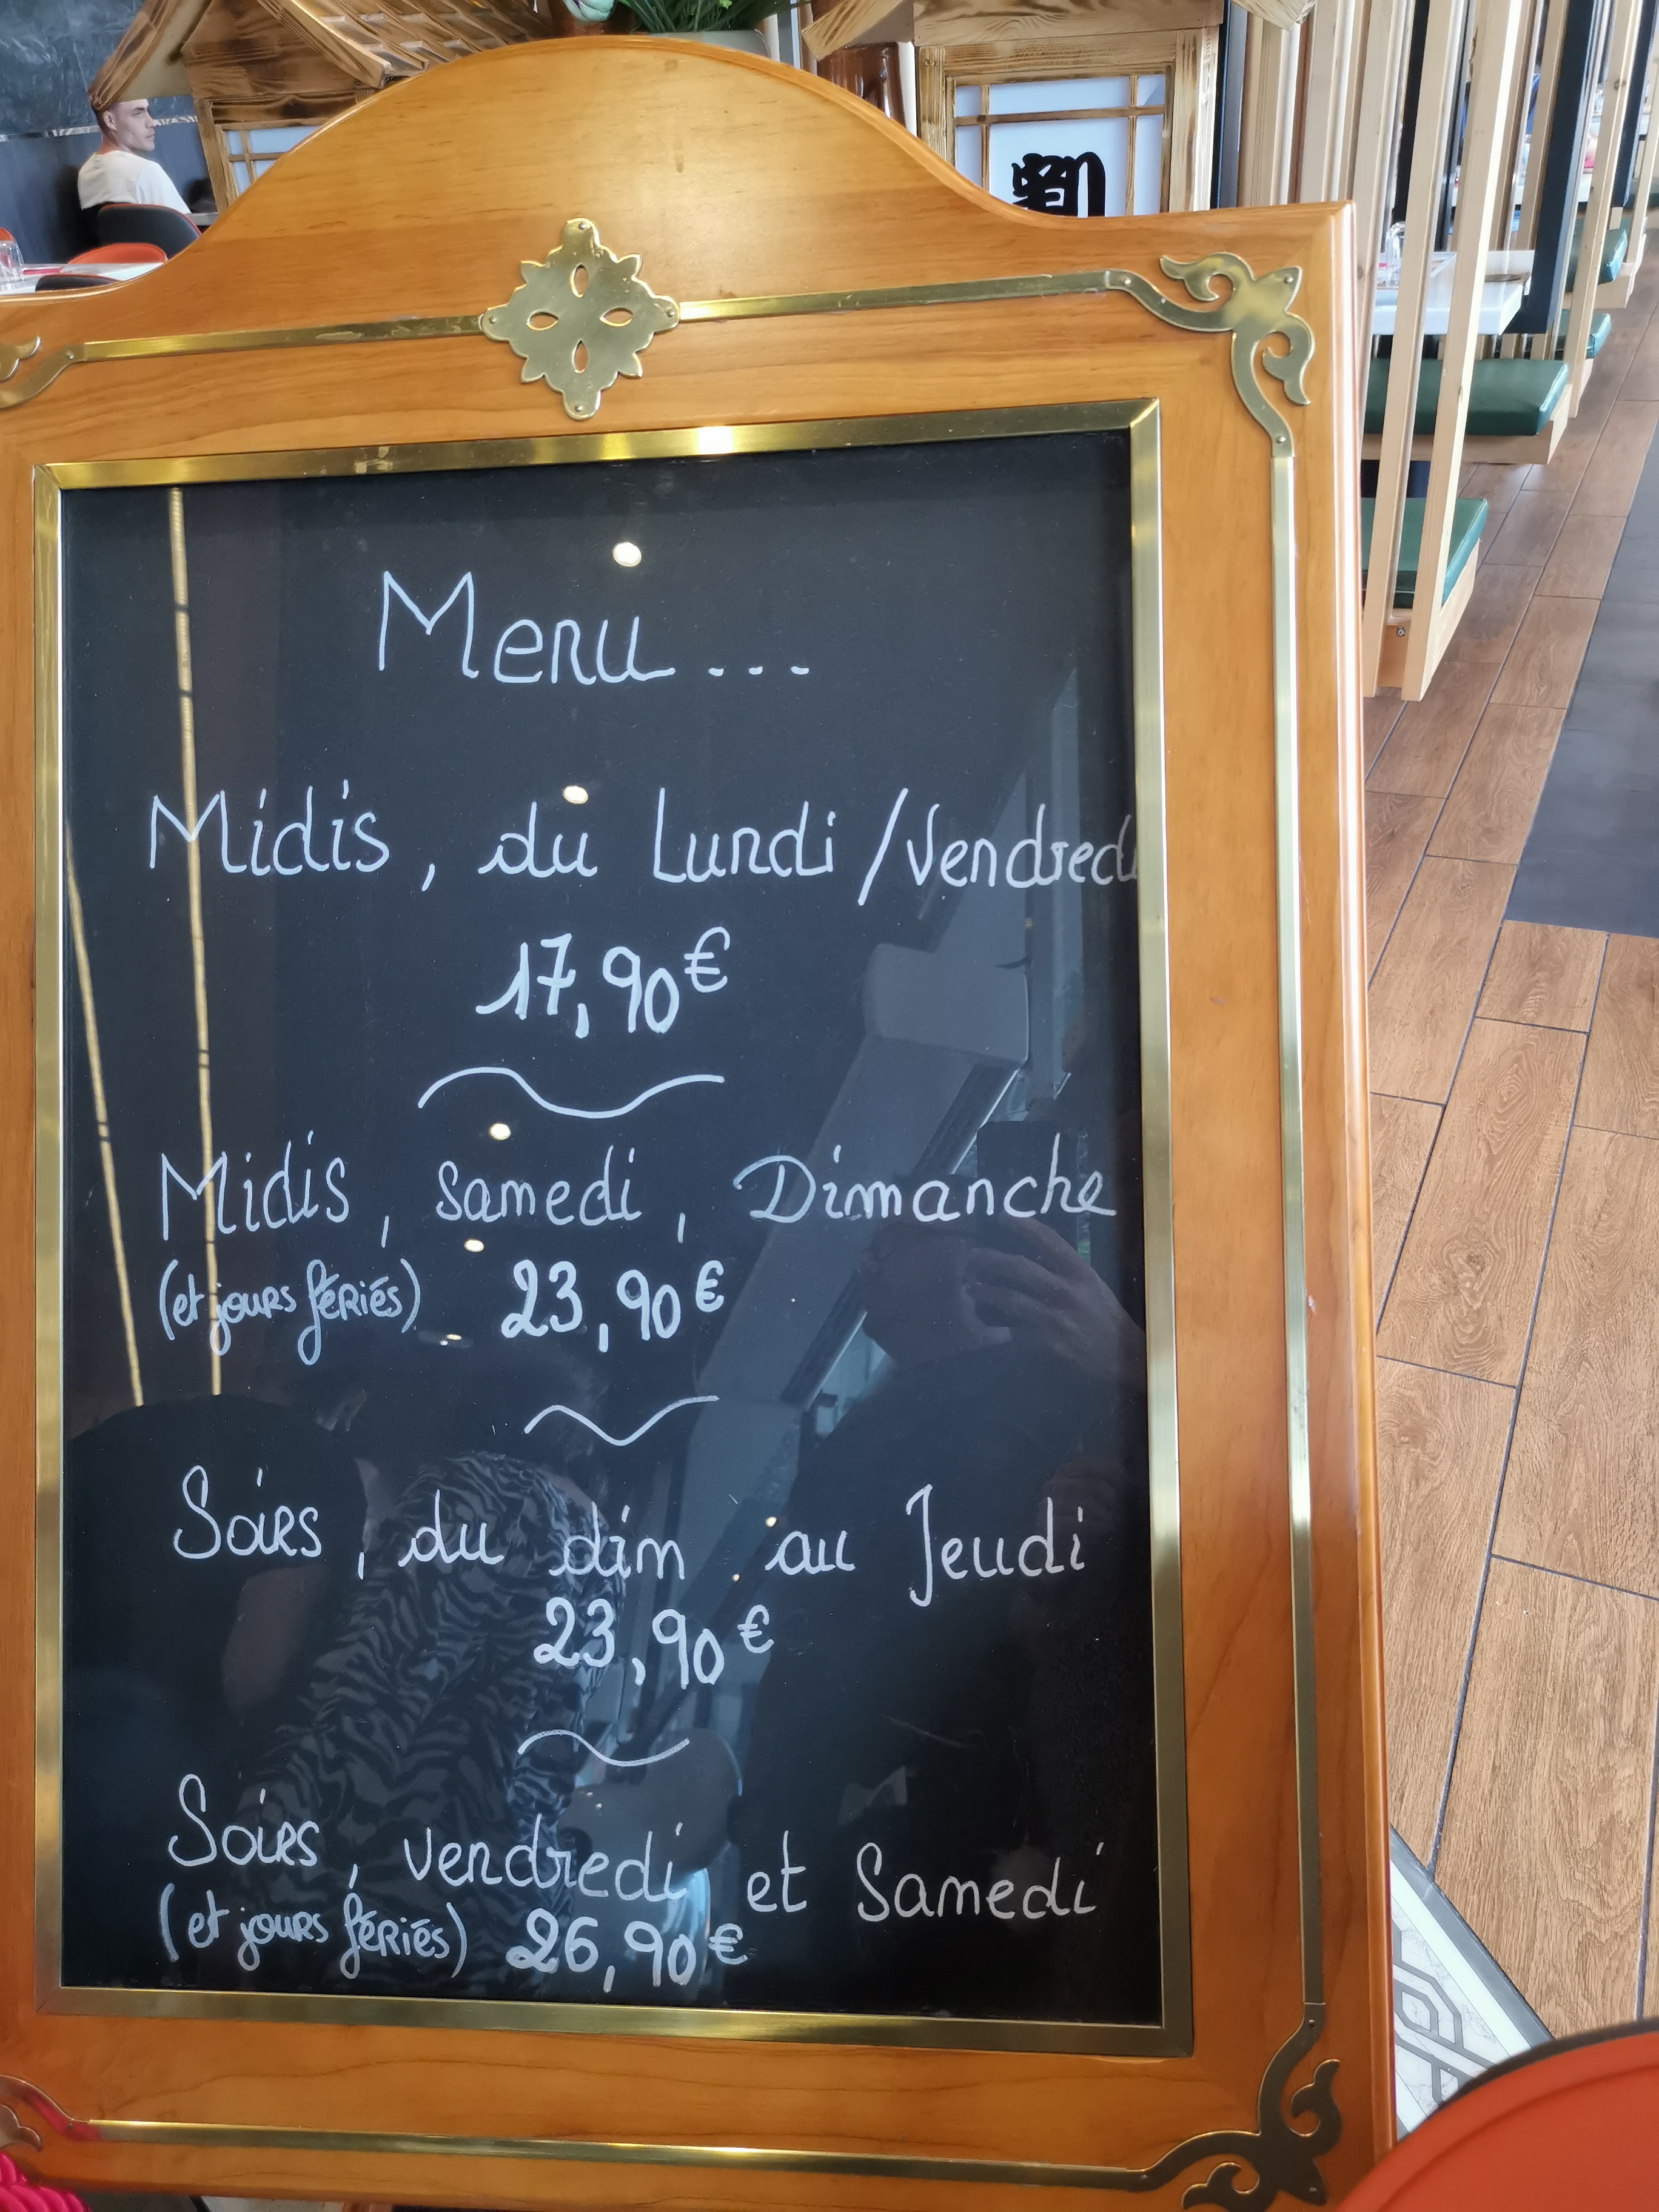 Menu...
Midis, du Lundi/Vendredi
17,90€
Midis, Samedi, Dimanche
(et jours fériés) 23,90€
Soirs, du dim au Jeudi
23,90€
Soirs, vendredi et Samedi
(et jours fériés) 26,90€